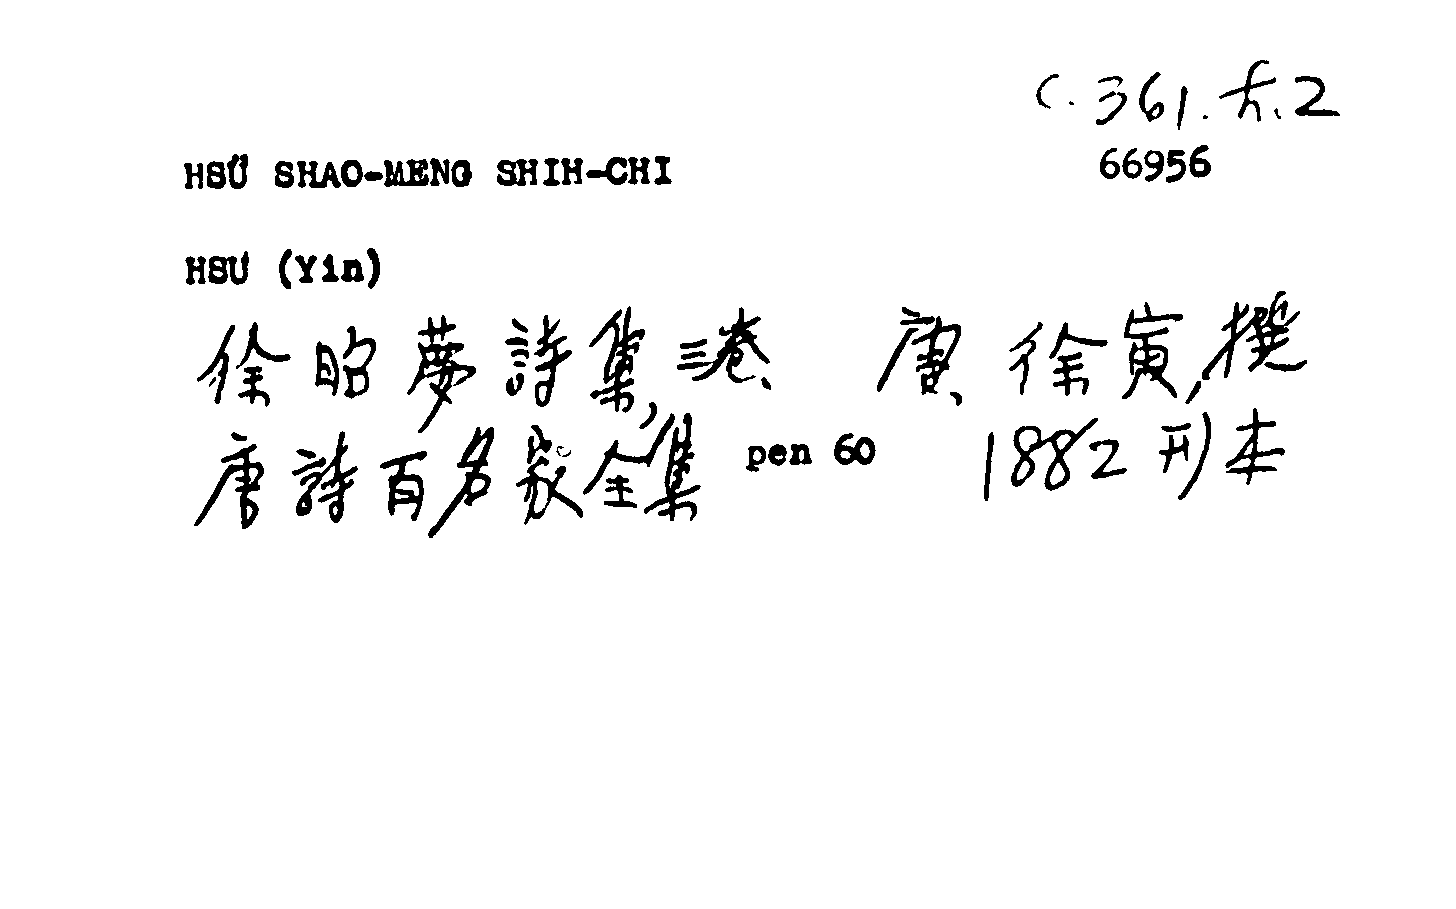 C. 361. た. 2
66956
HSÜ SHAO-MENG SHIH-CHI
HSU (Yin)
徐昭夢詩集, 三卷、 唐、徐寅, 撰
唐詩百名家全集 pen 60 1882 刊本